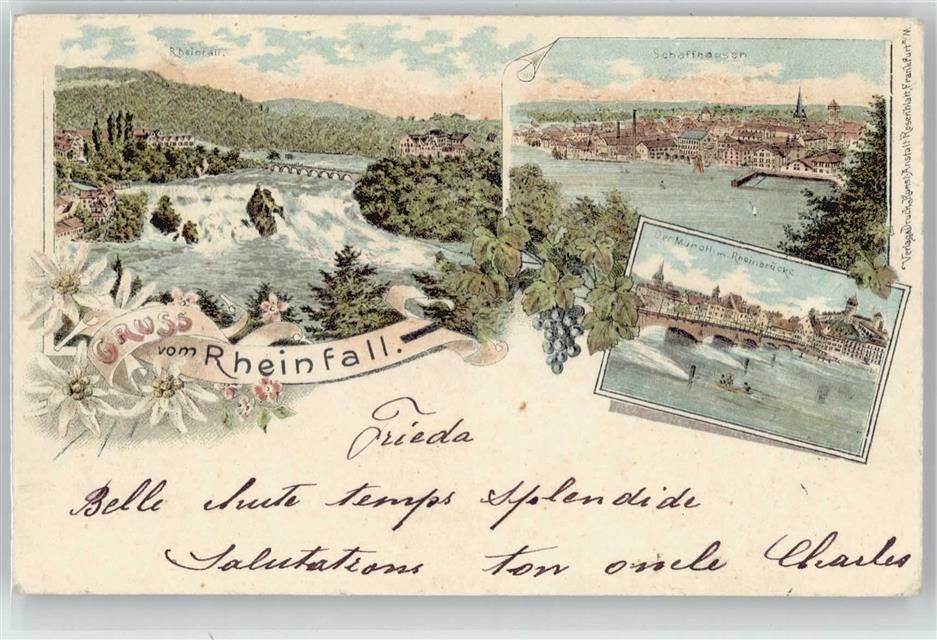 Rheinfall.
Schaffhausen
Der Munoth m. Rheinbrücke
GRUSS
vom Rheinfall.
Frieda
Belle chute temps splendide
Salutations ton oncle Charles
Verlag Druck Kunst-Anstalt Rosenblatt, Frankfurt a/M.